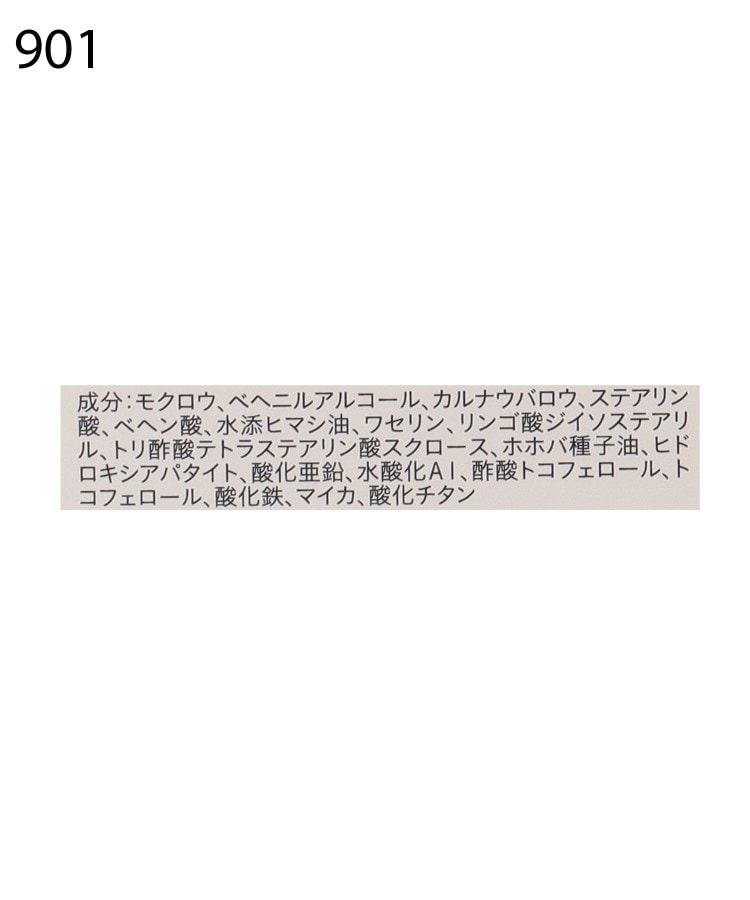 901
成分:モクロウ、ベヘニルアルコール、カルナウバロウ、ステアリン
酸、ベヘン酸、水添ヒマシ油、ワセリン、リンゴ酸ジイソステアリ
ル、トリ酢酸テトラステアリン酸スクロース、ホホバ種子油、ヒド
ロキシアパタイト、酸化亜鉛、水酸化Al、酢酸トコフェロール、ト
コフェロール、酸化鉄、マイカ、酸化チタン